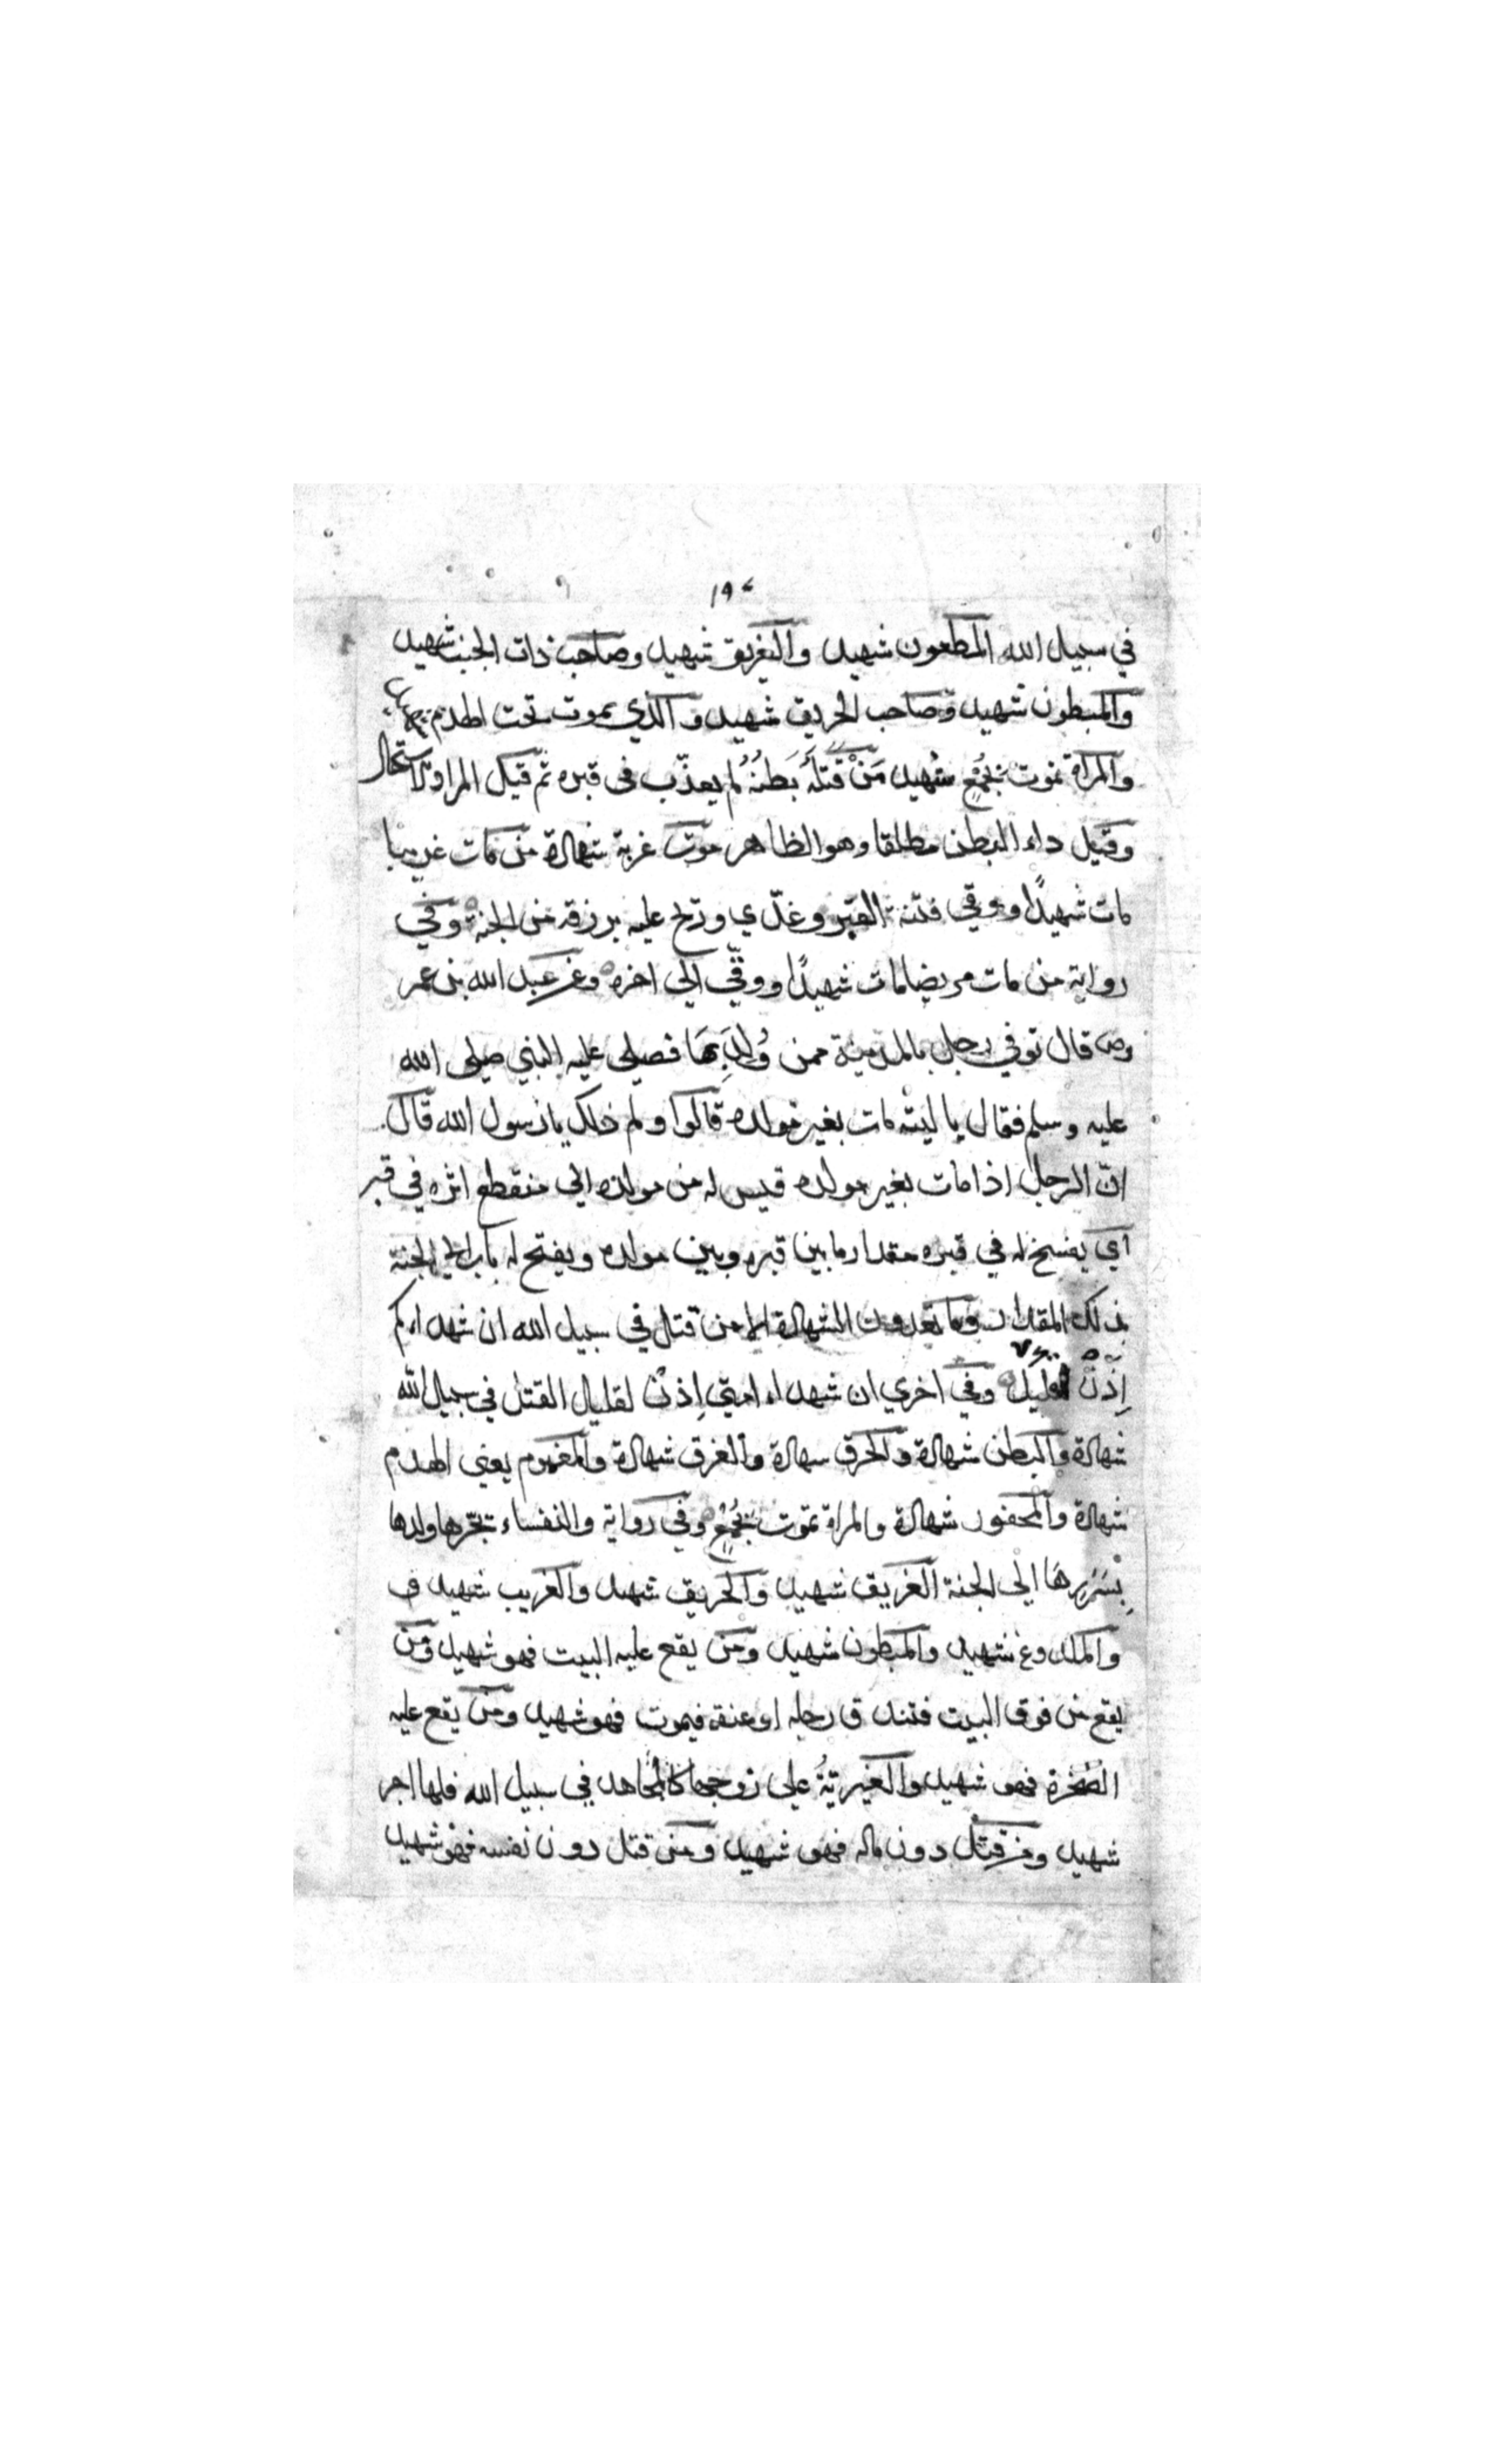 ١٩٤
في سبيل الله المطعون شهيد والغريق شهيد وصاحب ذات الجنب شهيد
والمبطون شهيد وصاحب الحريق شهيد والذي يموت تحت الهدم شهيد
والمراة تموت بجُمْعٍ شهيد مَنْ قَتَلَهُ بَطنُهُ لم يعذّب في قبره ثم قيل المراد الاستحال
وقيل داء البطن مطلقا وهو الظاهر موت غربة شهادة من مات غريبا
مات شهيدًا ووقي فتنة القبر وغدّي وريح عليه برزقه من الجنة وفي
رواية من مات مريضا مات شهيدًا ووقي الي اخره وعن عبد الله بن عمر
رض قال توفي رجل بالمدينة ممن وُلِدَ بها فصلى عليه النبي صلى الله
عليه وسلم فقال يا ليته مات بغير مولده قالوا ولم ذلك يا رسول الله قال
انّ الرجل اذا مات بغير مولده قيس له من مولده الي منقطع اثره في قبر
اي يفسح له في قبره مقدار ما بين قبره وبين مولده ويفتح له باب الي الجنة
بذلك المقدار وما تعدون الشهادة الا من قتل في سبيل الله ان شهداءكم
اِذَنْ لقليل وفي اخري ان شهداء امتي اِذنْ لقليل القتل في سبيل الله
شهادة والبطن شهادة والحرق سهادة والغرق شهادة والمغموم يعني الهدم
شهادة والمحفور شهادة والمراة تموت بجُمْعٍ وفي رواية والنفساء يجرّها ولدها
بِسَرَرِهَا الي الجنة الغريق شهيد والحريق شهيد والغريب شهيد ف
والملدوغ شهيد والمبطون شهيد ومن يقع عليه البيت فهو شهيد ومن
يقع من فوق البيت فتندق رجله او عنقه فيموت فهو شهيد ومن يقع عليه
الصّخرة فهو شهيد والغيريّةُ علي زوجها كالمجاهد في سبيل الله فلها اجر
شهيد ومن قتل دون ماله فهو شهيد ومن قتل دون نفسه فهو شهيد